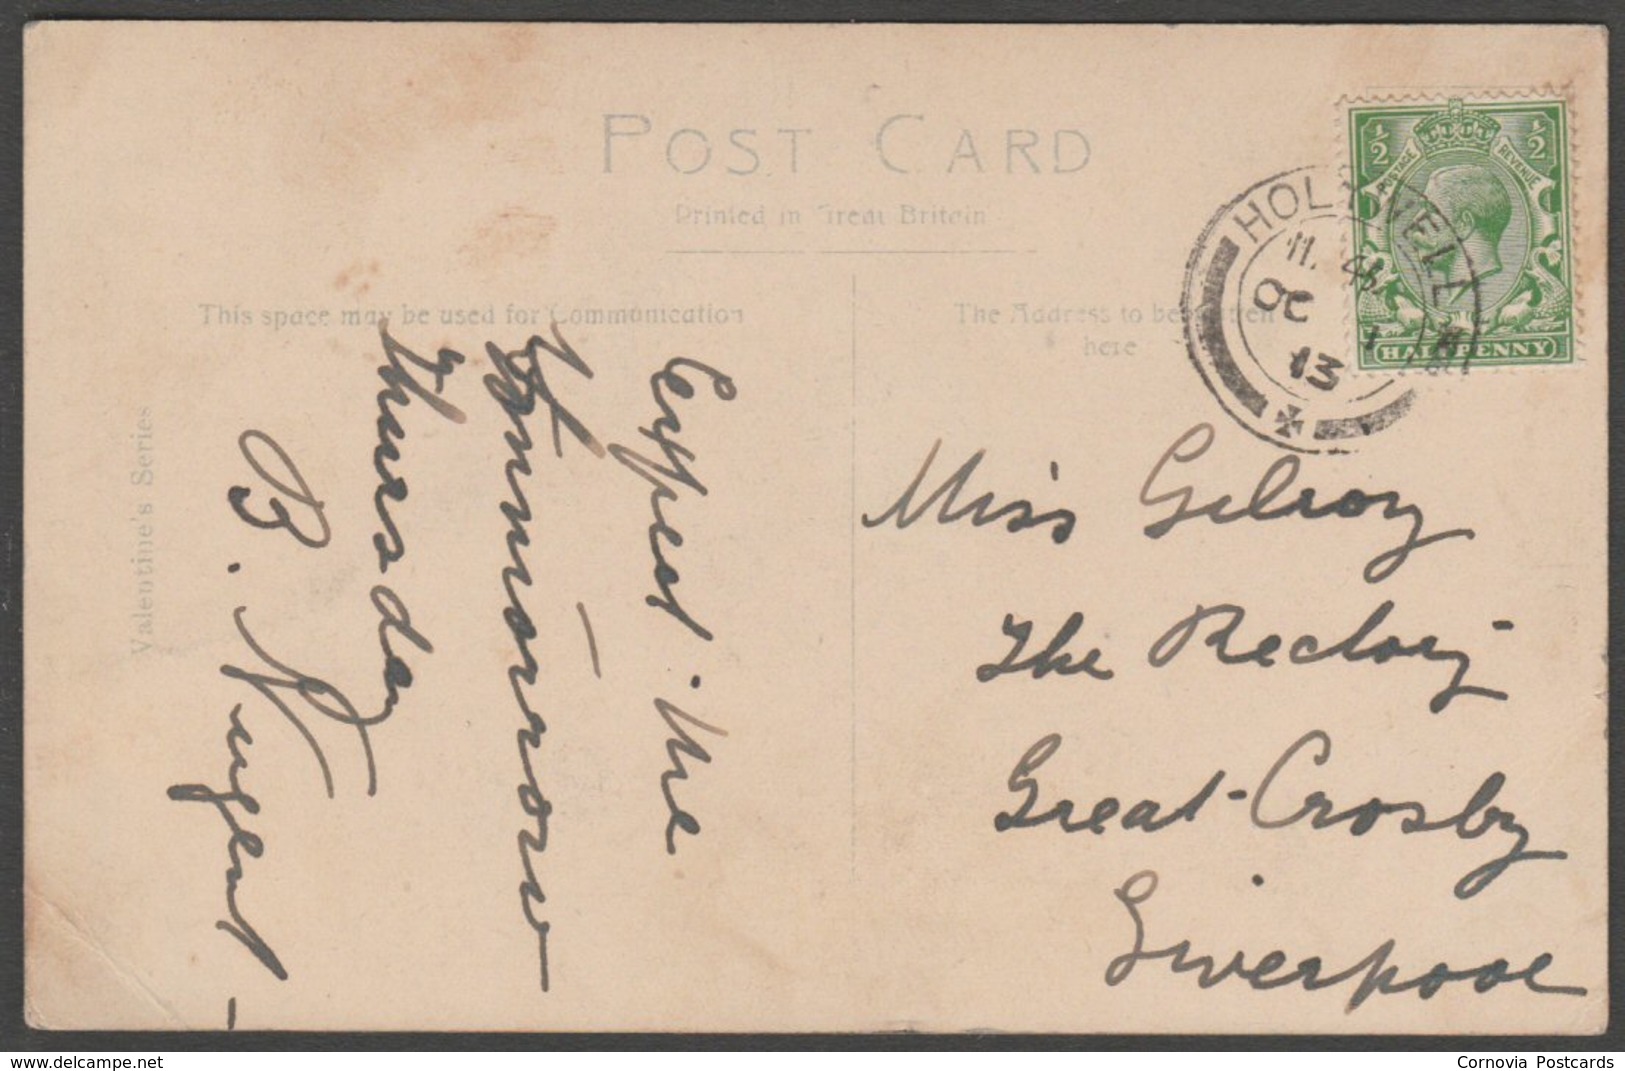 POST CARD
Printed in Great Britain
This space may be used for Communication
The Address to be given
here
Valentine's Series
½ ½
POSTAGE REVENUE
HALFPENNY
HOLYWELL
11.
OC 1
13
Expect me
Tommorrow
Thursday
B. Nugent
Miss Gilroy
The Rectory
Great Crosby
Liverpool
www.delcampe.net
Cornovia Postcards